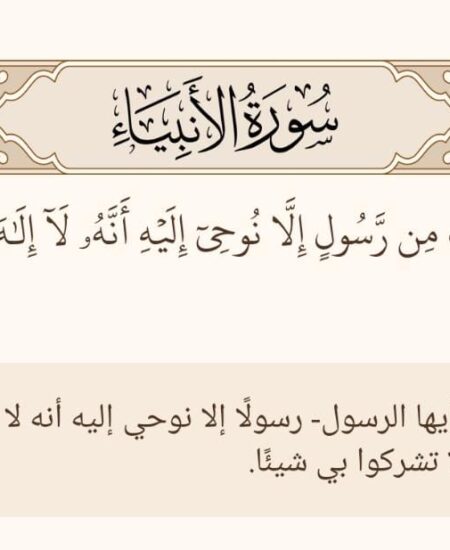 سُورَةُ الأَنبِيَاءِ
مِن رَّسُولٍ إِلَّا نُوحِىٓ إِلَيْهِ أَنَّهُۥ لَآ إِلَٰهَ
يها الرسول- رسولًا إلا نوحي إليه أنه لا
تشركوا بي شيئًا.